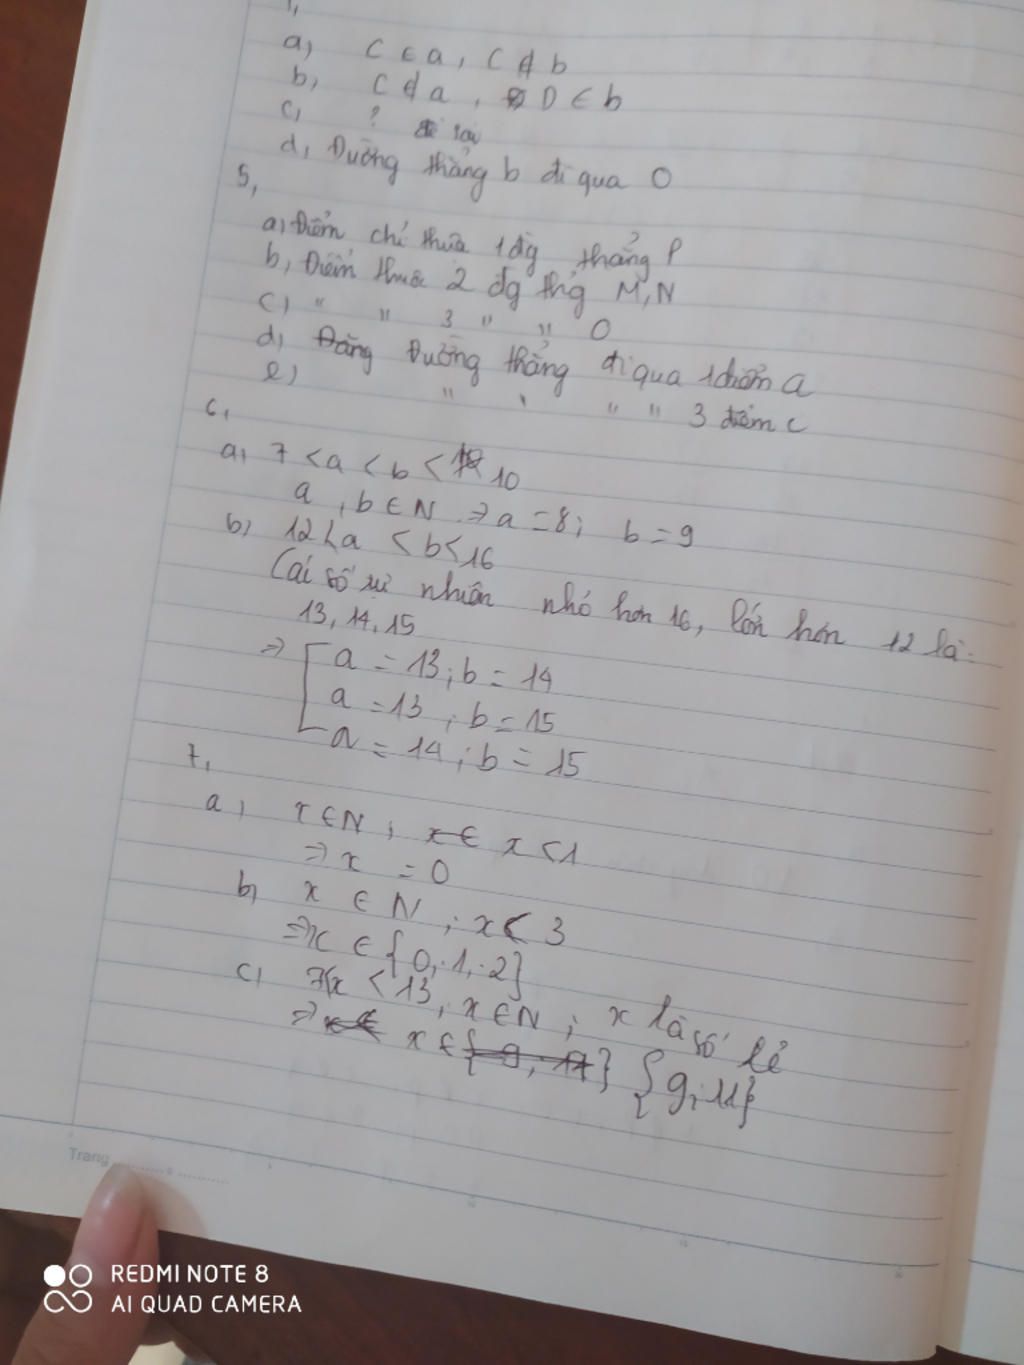 a, C ∈ a, C ∉ b
b, C ∉ a, D ∈ b
c, ? sai
d, Đường thẳng b đi qua O
5,
a, Điểm chỉ thuộc 1 đg thẳng P
b, Điểm thuộc 2 đg thg M, N
c, " " 3 " " O
d, Đường thẳng đi qua 1 điểm a
e) " " " " 3 điểm c
6,
a, 7 < a < b < 10
a, b ∈ N ⇒ a = 8; b = 9
b) 12 < a < b < 16
Các số tự nhiên nhỏ hơn 16, lớn hơn 12 là:
13, 14, 15
⇒ [ a = 13; b = 14
a = 13; b = 15
a = 14; b = 15
7,
a, x ∈ N; x < 1
⇒ x = 0
b, x ∈ N; x < 3
⇒ x ∈ {0, 1, 2}
c, 7 < x < 13, x ∈ N; x là số lẻ
⇒ x ∈ {9, 11}
Trang
REDMI NOTE 8
AI QUAD CAMERA